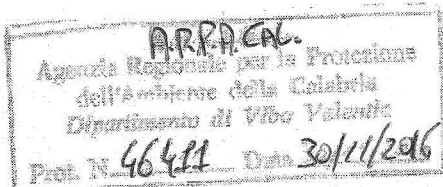 A.R.P.A.CAL.
Agenzia Regionale per la Protezione
dell'Ambiente della Calabria
Dipartimento di Vibo Valentia
Prot. N. 46411 Data 30/11/2016